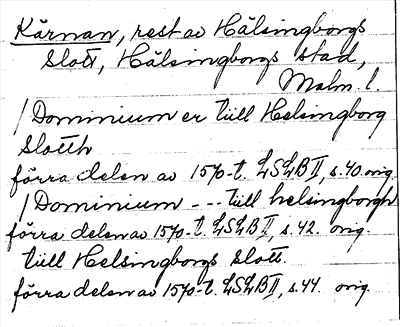 Kärnan, rest av Hälsingborgs
slott, Hälsingborgs stad,
Malm. l.
/Dominium er till Helsingborg
Slotth
förra delen av 1570-t. LSLB II, s. 40. orig.
/Dominium --- till helsingborgh
förra delen av 1570-t. LSLB II, s. 42. orig.
till Helsingborgs slott.
förra delen av 1570-t. LSLB II, s. 44. orig.